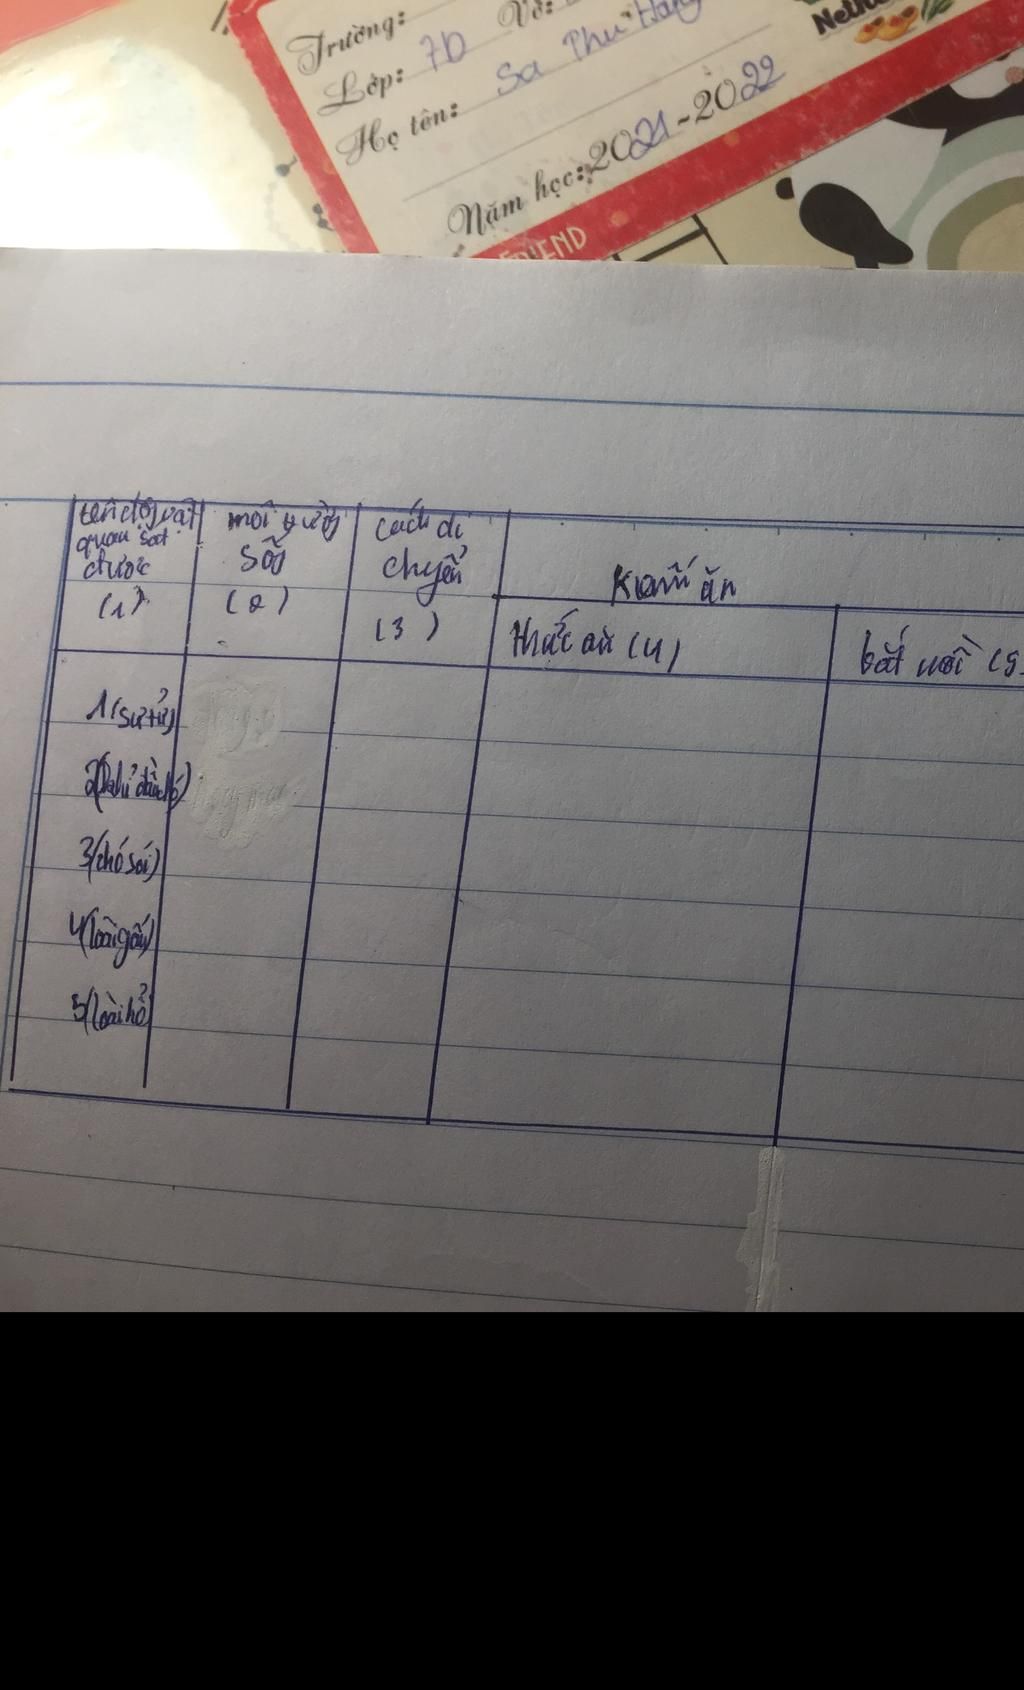 Trường: Vở:
Lớp: 7D
Họ tên: Sa Thu Hằng
Năm học: 2021-2022
FRIEND
tên động vật môi trường cách di
quan sát sống chuyển kiếm ăn
được
(1) (2) (3) thức ăn (4) bắt mồi (5
1(sư tử)
2(khỉ đầu chó)
3(chó sói)
4(loài gấu)
5(loài hổ)